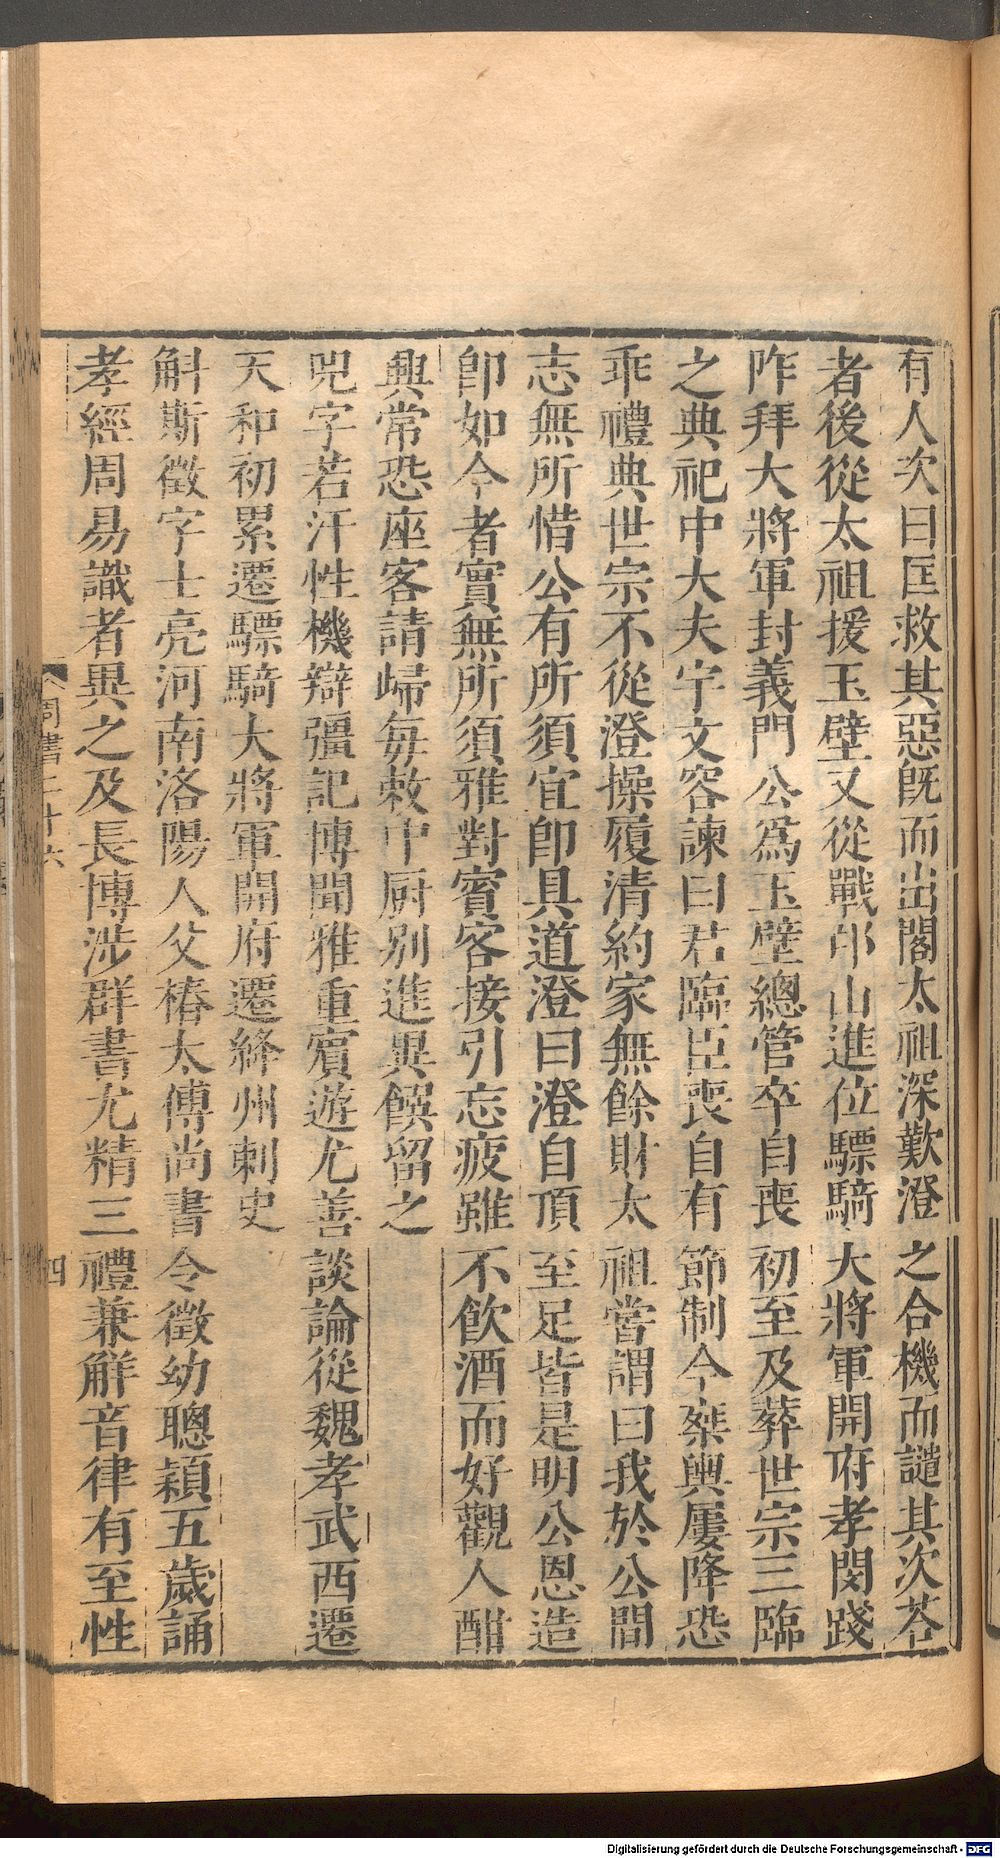 有人次曰匡救其惡旣而出閤太祖深歎澄之合機而譴其次荅
者後從太祖援玉壁又從戰邙山進位驃騎大將軍開府孝閔踐
阼拜大將軍封義門公爲玉壁總管卒自喪初至及葬世宗三臨
之典祀中大夫宇文容諫曰君臨臣喪自有節制今桒輿屢降恐
乖禮典世宗不從澄操履清約家無餘財太祖嘗謂曰我於公間
志無所惜公有所須宜卽具道澄曰澄自頂至足皆是明公恩造
卽如今者實無所須雅對賓客接引忘疲雖不飮酒而好觀人酣
興常恐座客請歸每敕中厨别進異饌留之
兕字若汗性機辯彊記博聞雅重賓遊尤善談論從魏孝武西遷
天和初累遷驃騎大將軍開府遷絳州刺史
斛斯徵字士亮河南洛陽人父椿太傅尚書令徵幼聰穎五歲誦
孝經周易識者異之及長博涉群書尤精三禮兼解音律有至性
周書二十六
四
Digitalisierung gefördert durch die Deutsche Forschungsgemeinschaft - DFG